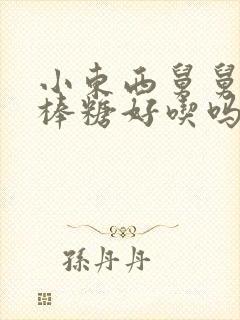 小东西舅舅
棒糖好喫吗
孫丹丹